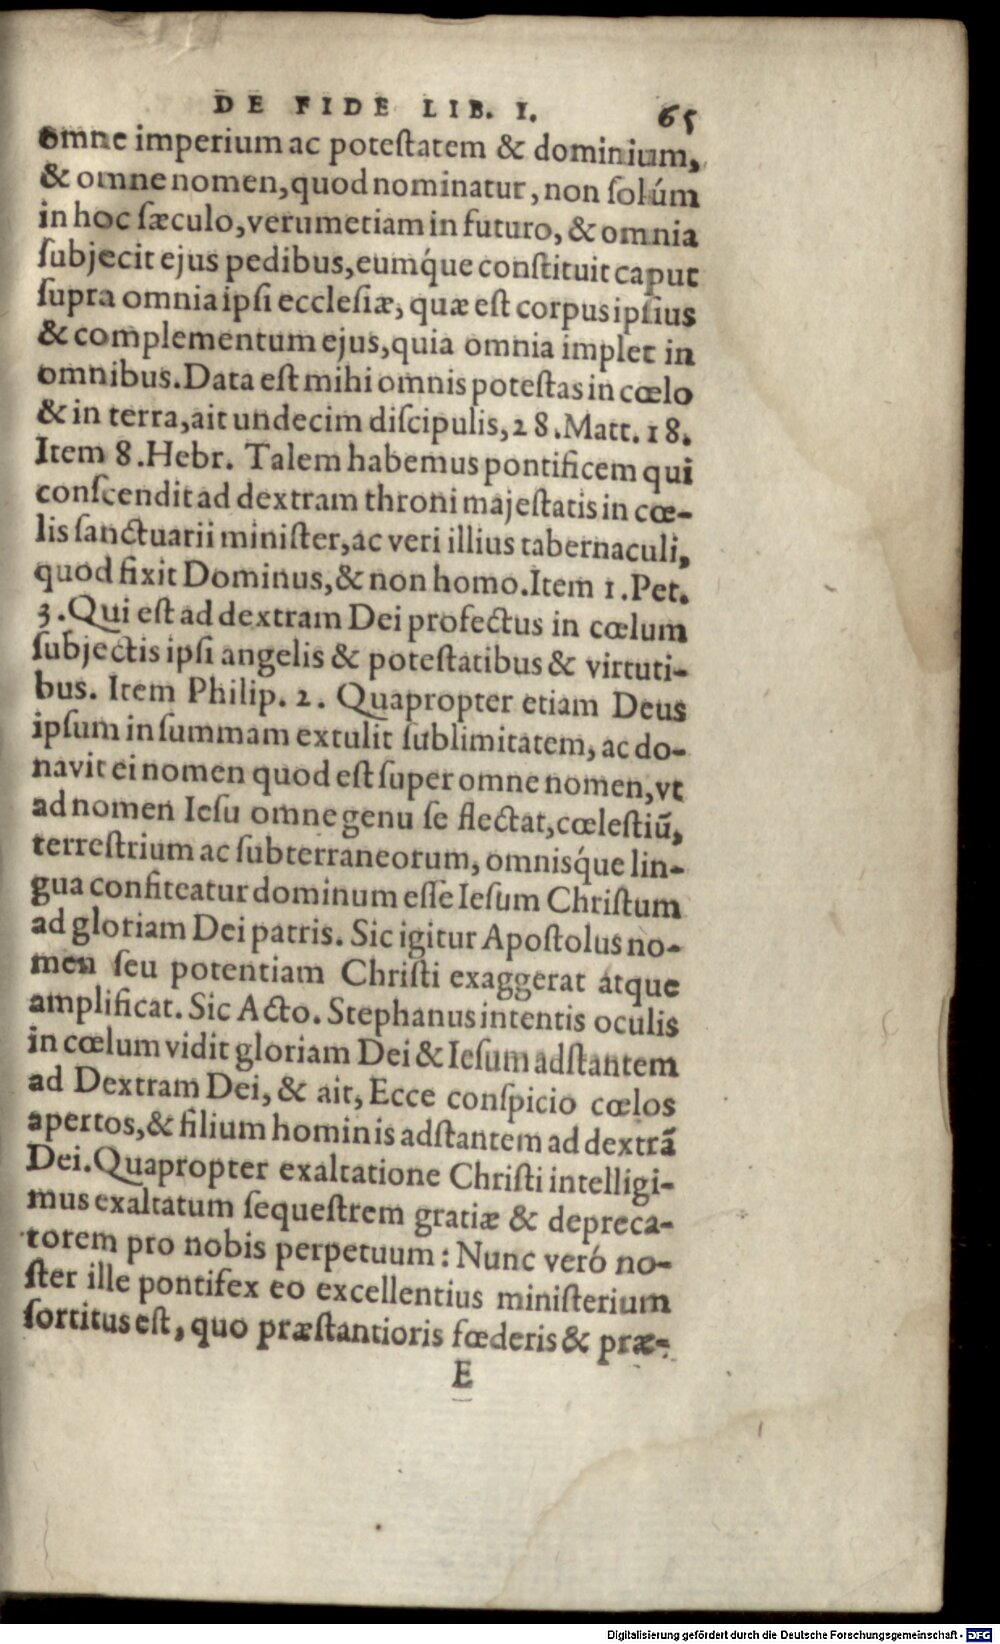 DE FIDE LIB. I. 65
omne imperium ac poteſtatem & dominium,
& omne nomen, quod nominatur, non ſolúm
in hoc ſæculo, verumetiam in futuro, & omnia
ſubjecit ejus pedibus, eumq́ue conſtituit caput
ſupra omnia ipſi eccleſiæ, quæ eſt corpus ipſius
& complementum ejus, quia omnia implet in
omnibus. Data eſt mihi omnis poteſtas in cœlo
& in terra, ait undecim diſcipulis, 28. Matt. 18.
Item 8. Hebr. Talem habemus pontificem qui
conſcendit ad dextram throni majeſtatis in cœ-
lis ſanctuarii miniſter, ac veri illius tabernaculi,
quod fixit Dominus, & non homo. Item 1. Pet.
3. Qui eſt ad dextram Dei profectus in cœlum
ſubjectis ipſi angelis & poteſtatibus & virtuti-
bus. Item Philip. 2. Quapropter etiam Deus
ipſum in ſummam extulit ſublimitatem, ac do-
navit ei nomen quod eſt ſuper omne nomen, vt
ad nomen Ieſu omne genu ſe flectat, cœleſtiũ,
terreſtrium ac ſubterraneorum, omniśque lin-
gua confiteatur dominum eſſe Ieſum Chriſtum
ad gloriam Dei patris. Sic igitur Apoſtolus no-
men ſeu potentiam Chriſti exaggerat atque
amplificat. Sic Acto. Stephanus intentis oculis
in cœlum vidit gloriam Dei & Ieſum adſtantem
ad Dextram Dei, & ait, Ecce conſpicio cœlos
apertos, & filium hominis adſtantem ad dextrã
Dei. Quapropter exaltatione Chriſti intelligi-
mus exaltatum ſequeſtrem gratiæ & depreca-
torem pro nobis perpetuum: Nunc veró no-
ſter ille pontifex eo excellentius miniſterium
ſortitus eſt, quo præſtantioris fœderis & præ-
E
Digitalisierung gefördert durch die Deutsche Forschungsgemeinschaft - DFG